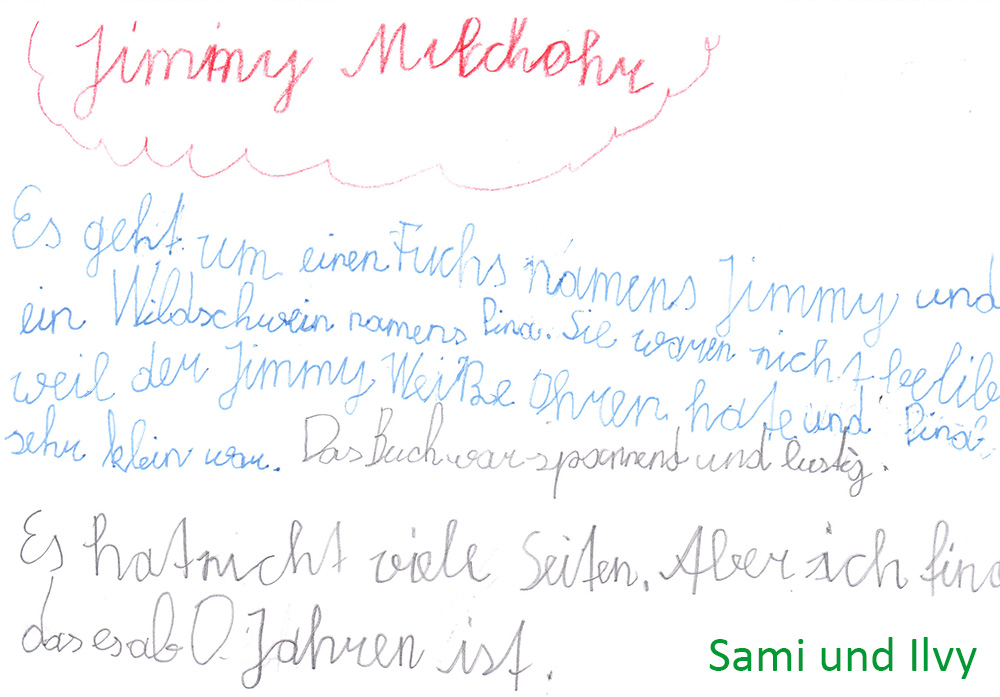 Jimmy Milchohr
Es geht um einen Fuchs namens Jimmy und
ein Wildschwein namens Pina. Sie waren nicht belieb
weil der Jimmy Weiße Ohren hate und Pina
sehr klein war. Das Buch war spannend und lustig.
Es hat nicht viele Seiten. Aber ich find
das es ab 0 Jahren ist.
Sami und Ilvy